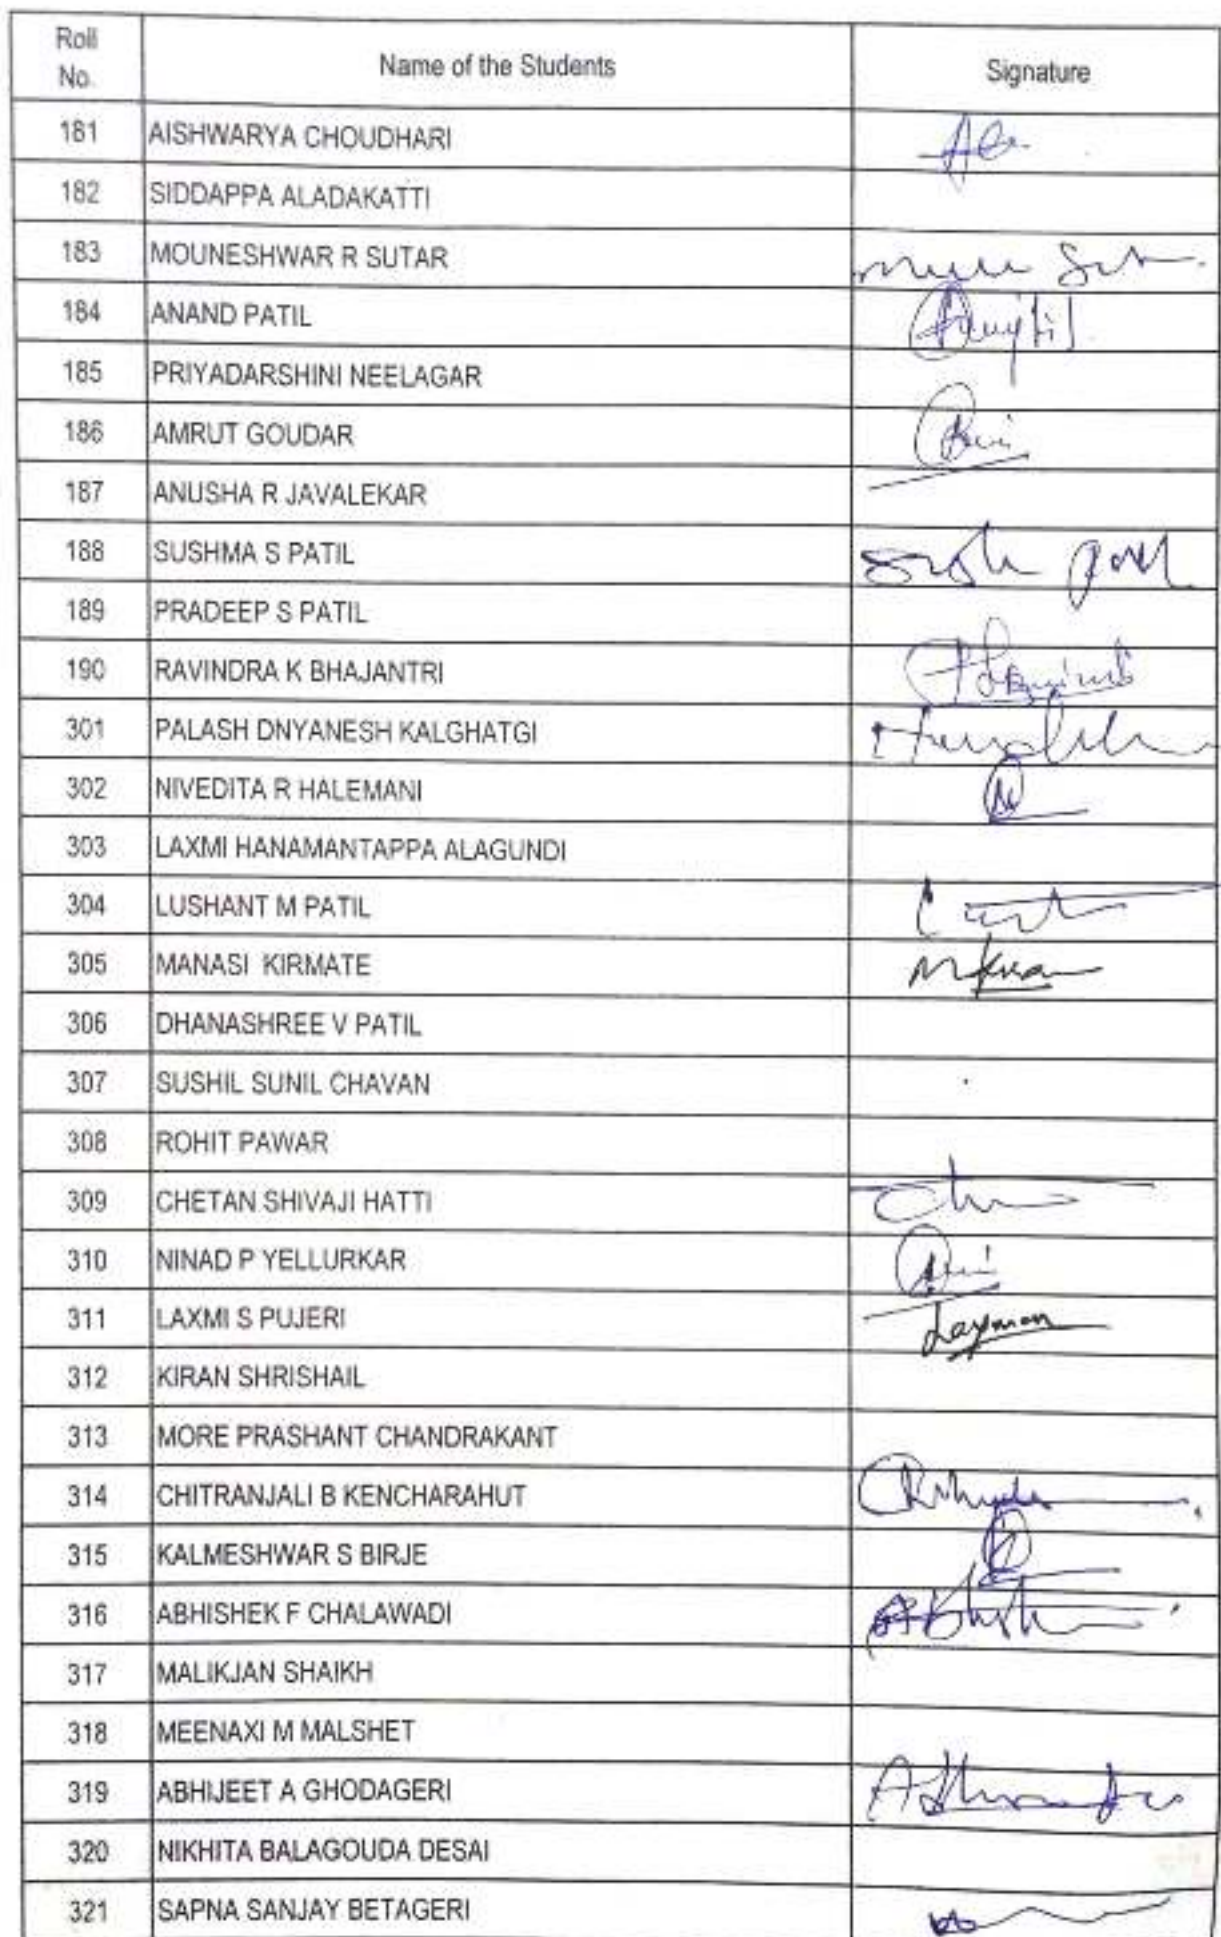 Roll No.	Name of the Students	Signature
181	AISHWARYA CHOUDHARI
182	SIDDAPPA ALADAKATTI
183	MOUNESHWAR R SUTAR
184	ANAND PATIL
185	PRIYADARSHINI NEELAGAR
186	AMRUT GOUDAR
187	ANUSHA R JAVALEKAR
188	SUSHMA S PATIL
189	PRADEEP S PATIL
190	RAVINDRA K BHAJANTRI
301	PALASH DNYANESH KALGHATGI
302	NIVEDITA R HALEMANI
303	LAXMI HANAMANTAPPA ALAGUNDI
304	LUSHANT M PATIL
305	MANASI KIRMATE
306	DHANASHREE V PATIL
307	SUSHIL SUNIL CHAVAN
308	ROHIT PAWAR
309	CHETAN SHIVAJI HATTI
310	NINAD P YELLURKAR
311	LAXMI S PUJERI
312	KIRAN SHRISHAIL
313	MORE PRASHANT CHANDRAKANT
314	CHITRANJALI B KENCHARAHUT
315	KALMESHWAR S BIRJE
316	ABHISHEK F CHALAWADI
317	MALIKJAN SHAIKH
318	MEENAXI M MALSHET
319	ABHIJEET A GHODAGERI
320	NIKHITA BALAGOUDA DESAI
321	SAPNA SANJAY BETAGERI